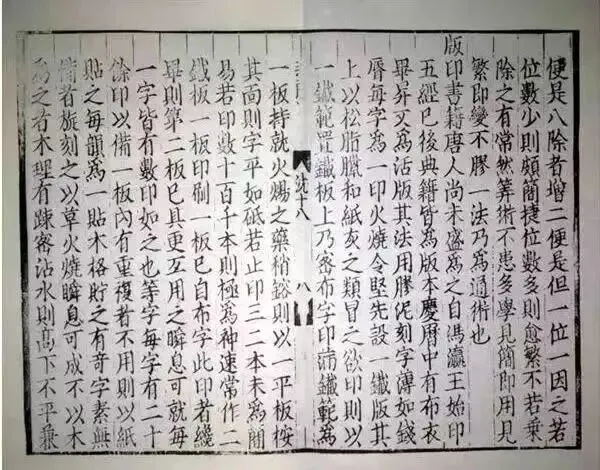 便是八除者增二便是但一位一因之若
位數少則頗簡捷位數多則愈繁不若乗
除之有常然筭術不患多學見簡即用見
繁即變不膠一法乃爲通術也
版印書籍唐人尚未盛爲之自馮瀛王始印
五經已後典籍皆爲版本慶曆中有布衣
畢昇又爲活版其法用膠泥刻字薄如錢
脣每字爲一印火燒令堅先設一鐵版其
上以松脂臘和紙灰之類冒之欲印則以
一鐵範置鐵板上乃密布字印滿鐵範爲
八
一板持就火煬之藥稍鎔則以一平板按
其面則字平如砥若止印三二本未爲簡
易若印數十百千本則極爲神速常作二
鐵板一板印刷一板已自布字此印者纔
畢則第二板已具更互用之瞬息可就每
一字皆有數印如之也等字每字有二十
餘印以備一板內有重複者不用則以紙
貼之每韻爲一貼木格貯之有奇字素無
備者旋刻之以草火燒瞬息可成不以木
爲之者木理有踈密沾水則高下不平兼